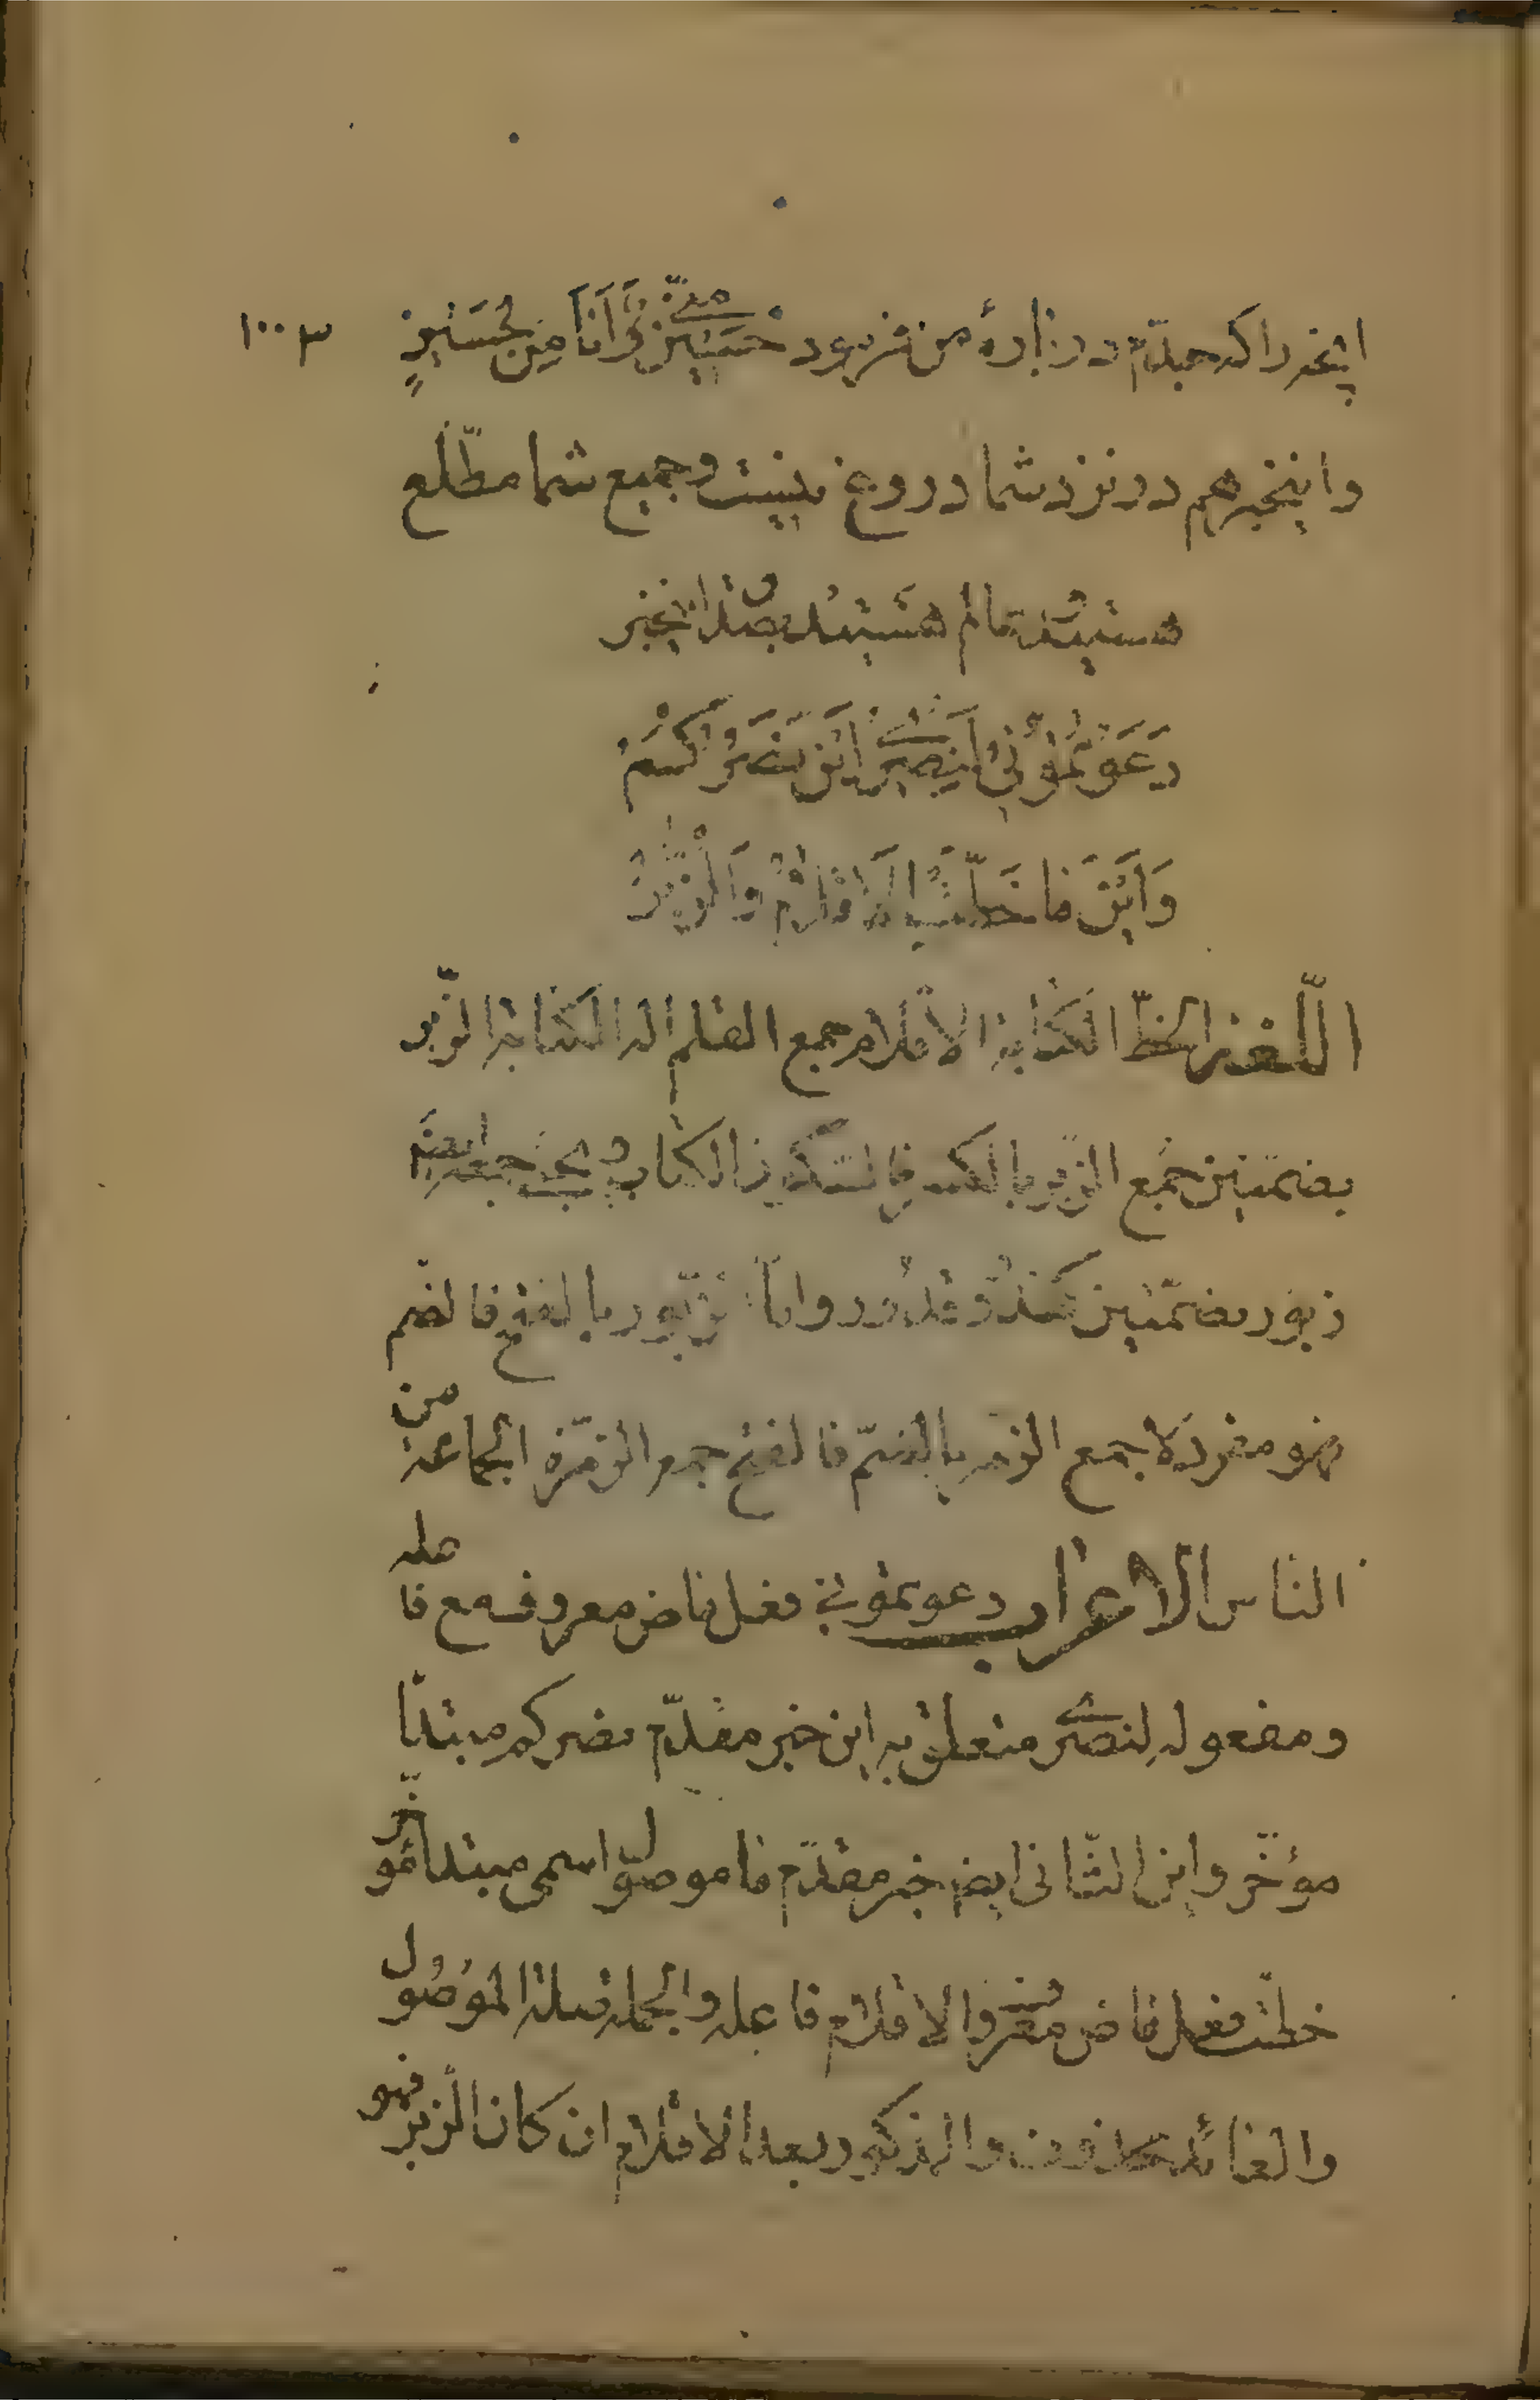 اینخبر را که جدّم در بارهٔ من فرمود حُسَیْنٌ مِنّی وَ اَنَا مِن حُسَیْنٍ ۱۰۰۳
و اینخبر هم در نزد شما دروغ نیست و جمیع شما مطّلع
هستید و عالم هستید بصدق اینخبر
دَعَوْتُمُوْنِیْ لِنَصْرِیْ اَیْنَ نَصْرُکُمْ
وَ اَیْنَ مَا خَطَّتِ الْاَقْلَامُ وَ الزُّبُرُ
اللّغة الخطّ الکتابة الاقلام جمع القلم الة الکتابة الزّبر
بضمّتین جمع الزّبر بالکسر فالسّکون الکتاب و یجئ جمعه ایضا
زبور بضمّتین کقدر و قدور و امّا زبور بالفتح فالضّم
فهو مفرد لا جمع الزمر بالضّم فالفتح جمع الزمرة الجماعة من
الناس الاعراب دعوتمونی فعل ماض معروف مع فاعله
و مفعوله لنصری متعلق به این خبر مقدّم نصرکم مبتدأ
مؤخّر و این الثّانی ایضا خبر مقدّم ما موصول اسمی مبتدا مؤخّر
خطّت فعل ماض معروف و الاقلام فاعله و الجملة صلة الموصول
و العائد محذوف و المذکور بعد الاقلام ان کان الزبر فهو